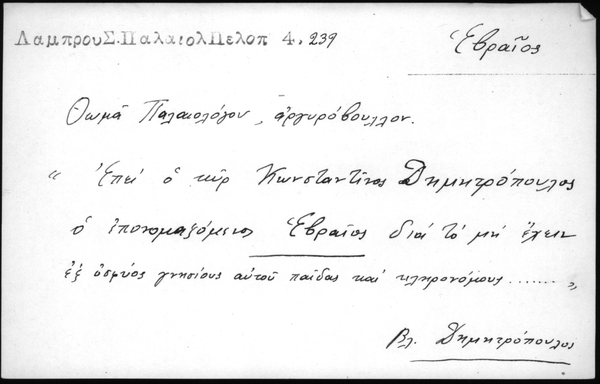 ΛαμπρουΣ.ΠαλαιολΠελοπ 4, 239
Ἑβραῖος
Θωμᾶ Παλαιολόγου, ἀργυρόβουλλον.
" Ἐπεί ὁ κῦρ Κωνσταντῖνος Δημητρόπουλος
ὁ ἐπονομαζόμενος Ἑβραῖος διά τό μή ἔχειν
ἐξ ὀσφύος γνησίους αὐτοῦ παῖδας καί κληρονόμους ........ "
Βλ. Δημητρόπουλος